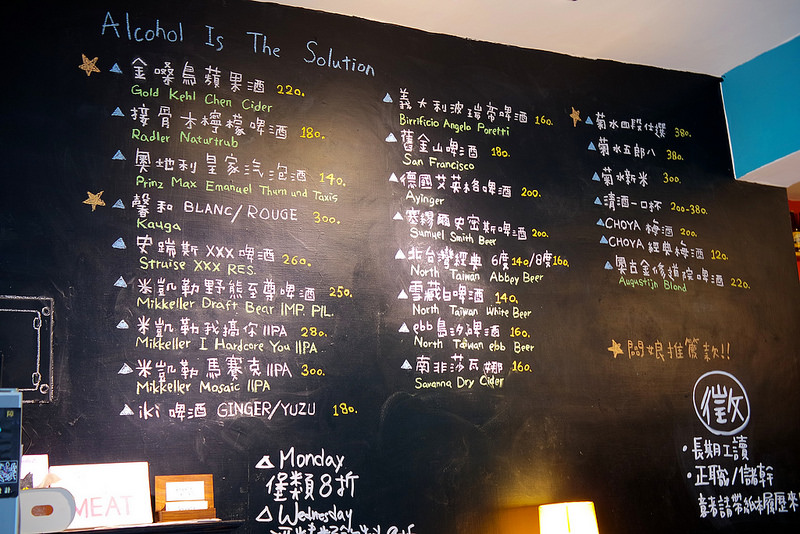 Alcohol Is The Solution
金嗓烏蘋果酒 220.
Gold Kehl Chen Cider
接骨木檸檬啤酒 180.
Radler Naturtrub
奧地利皇家汽泡酒 140.
Prinz Max Emanuel Thurn und Taxis
馨和 BLANC/ROUGE 300.
Kauga
史瑞斯 XXX 啤酒 260.
Struise XXX RES.
米凱勒野熊至尊啤酒 250.
Mikkeller Draft Bear IMP. PIL.
米凱勒我搞你IIPA 280.
Mikkeller I Hardcore You IIPA
米凱勒馬賽克IIPA 300.
Mikkeller Mosaic IIPA
iki 啤酒 GINGER/YUZU 180.
義大利波瑞帝啤酒 160.
Birrificio Angelo Poretti
舊金山啤酒 180.
San Francisco
德國艾英格啤酒 200.
Ayinger
塞繆爾史密斯啤酒 200.
Samuel Smith Beer
北台灣經典 6度140/8度160.
North Taiwan Abbey Beer
雪藏白啤酒 140.
North Taiwan White Beer
ebb島汐啤酒 160.
North Taiwan ebb Beer
南非莎瓦娜 160.
Savanna Dry Cider
菊水四段仕選 380.
菊水五郎八 380.
菊水新米 300.
清酒一口杯 200-380.
CHOYA 梅酒 200.
CHOYA 經典梅酒 120.
奧古金修道院啤酒 220.
Augustijn Blond
闆娘推薦款!!
徵
・長期工讀
・正職/儲幹
意者請帶紙本履歷來
Monday
堡類8折
Wednesday
MEAT